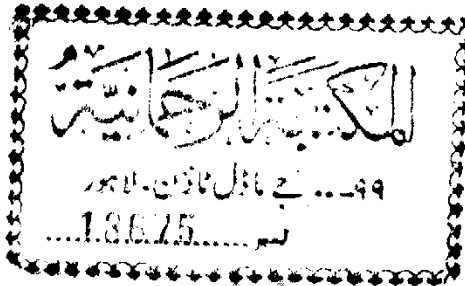 المكتبة الرحمانية
۹۹... جے ماڈل ٹاؤن۔ لاہور
نمبر.....18675....